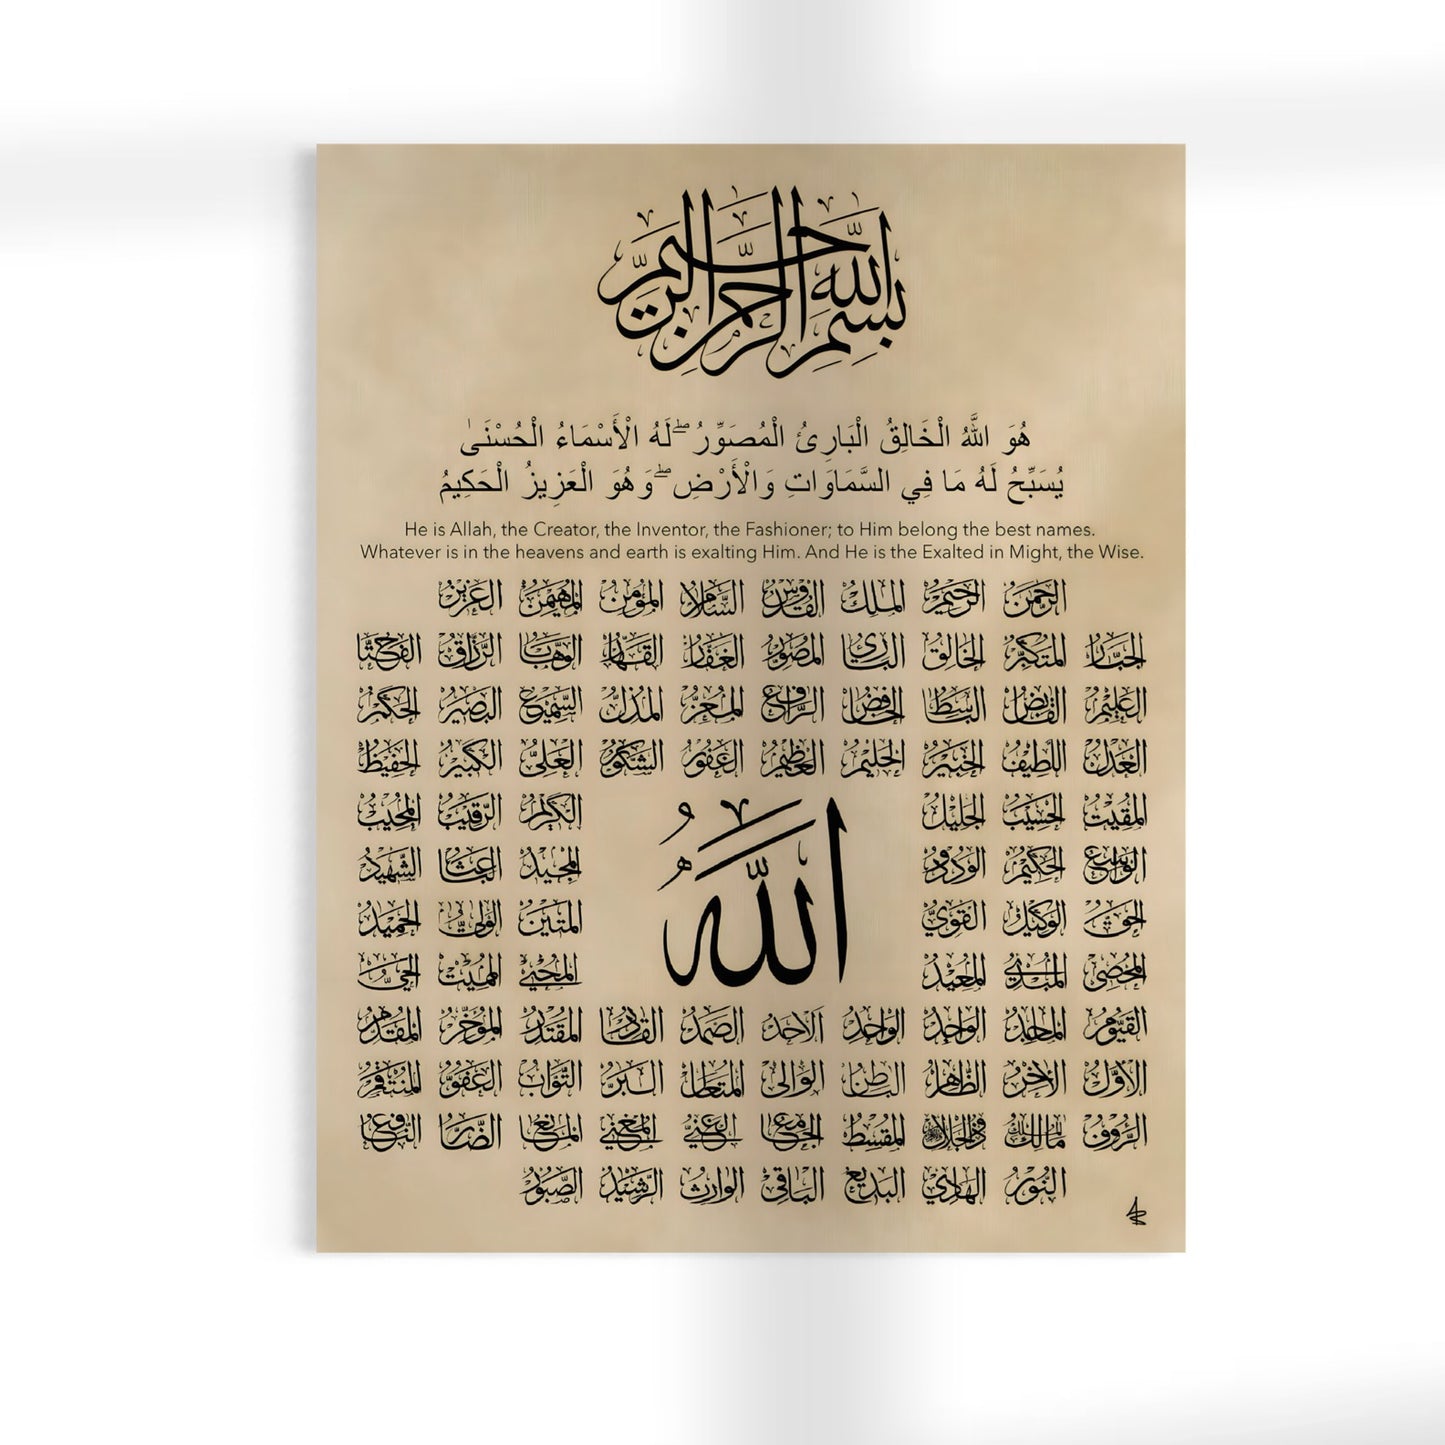 بِسْمِ اللهِ الرَّحْمٰنِ الرَّحِيمِ
هُوَ اللَّهُ الْخَالِقُ الْبَارِئُ الْمُصَوِّرُ ۖ لَهُ الْأَسْمَاءُ الْحُسْنَىٰ
يُسَبِّحُ لَهُ مَا فِي السَّمَاوَاتِ وَالْأَرْضِ ۖ وَهُوَ الْعَزِيزُ الْحَكِيمُ
He is Allah, the Creator, the Inventor, the Fashioner; to Him belong the best names.
Whatever is in the heavens and earth is exalting Him. And He is the Exalted in Might, the Wise.
الرحمن الرحيم الملك القدوس السلام المؤمن المهيمن العزيز
الجبار المتكبر الخالق البارئ المصور الغفار القهار الوهاب الرزاق الفتاح
العليم القابض الباسط الخافض الرافع المعز المذل السميع البصير الحكم
العدل اللطيف الخبير الحليم العظيم الغفور الشكور العلي الكبير الحفيظ
المقيت الحسيب الجليل الكريم الرقيب المجيب
الواسع الحكيم الودود المجيد الباعث الشهيد
الحق الوكيل القوي المتين الولي الحميد
الله
المحصي المبدئ المعيد المحيي المميت الحي
القيوم الماجد الواجد الواحد الاحد الصمد القادر المقتدر المؤخر المقدم
الأول الآخر الظاهر الباطن الوالي المتعال البر التواب العفو المنتقم
الرؤوف مالك الملك المقسط الجامع الغني المغني المانع الضار النافع
النور الهادي البديع الباقي الوارث الرشيد الصبور